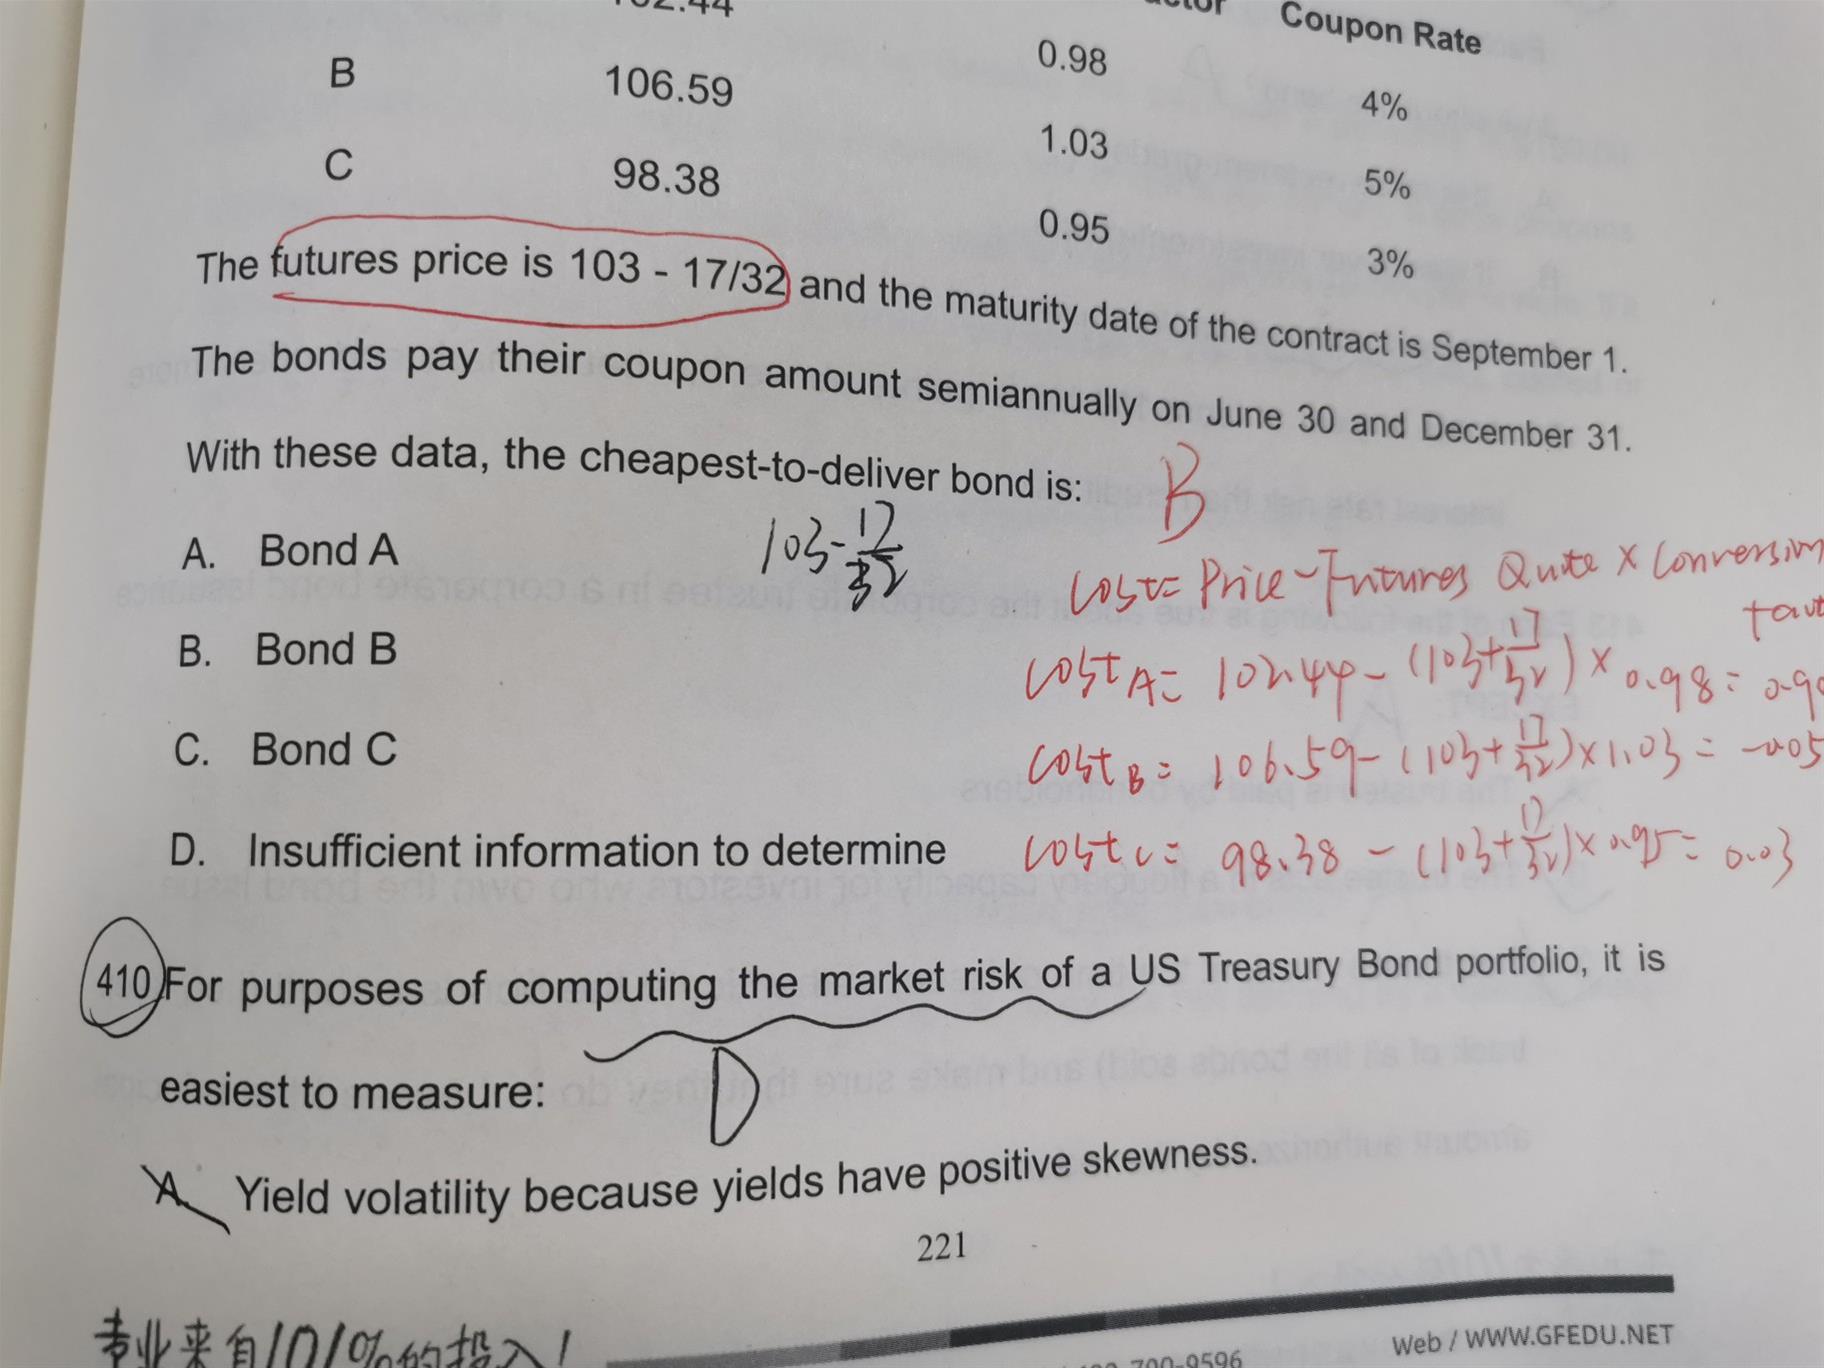 Coupon Rate
0.98 4%
B 106.59 1.03 5%
C 98.38 0.95 3%
The futures price is 103 - 17/32 and the maturity date of the contract is September 1.
The bonds pay their coupon amount semiannually on June 30 and December 31.
With these data, the cheapest-to-deliver bond is:
B
103-17/32
A. Bond A
Cost= Price-Futures Quote × Conversion
B. Bond B
Cost A= 102.44-(103+17/32)×0.98=
C. Bond C
Cost B= 106.59-(103+17/32)×1.03=
D. Insufficient information to determine
Cost C= 98.38-(103+17/32)×0.95=0.03
410 For purposes of computing the market risk of a US Treasury Bond portfolio, it is
easiest to measure:
D
A. Yield volatility because yields have positive skewness.
221
专业来自101%的投入!
Web / WWW.GFEDU.NET